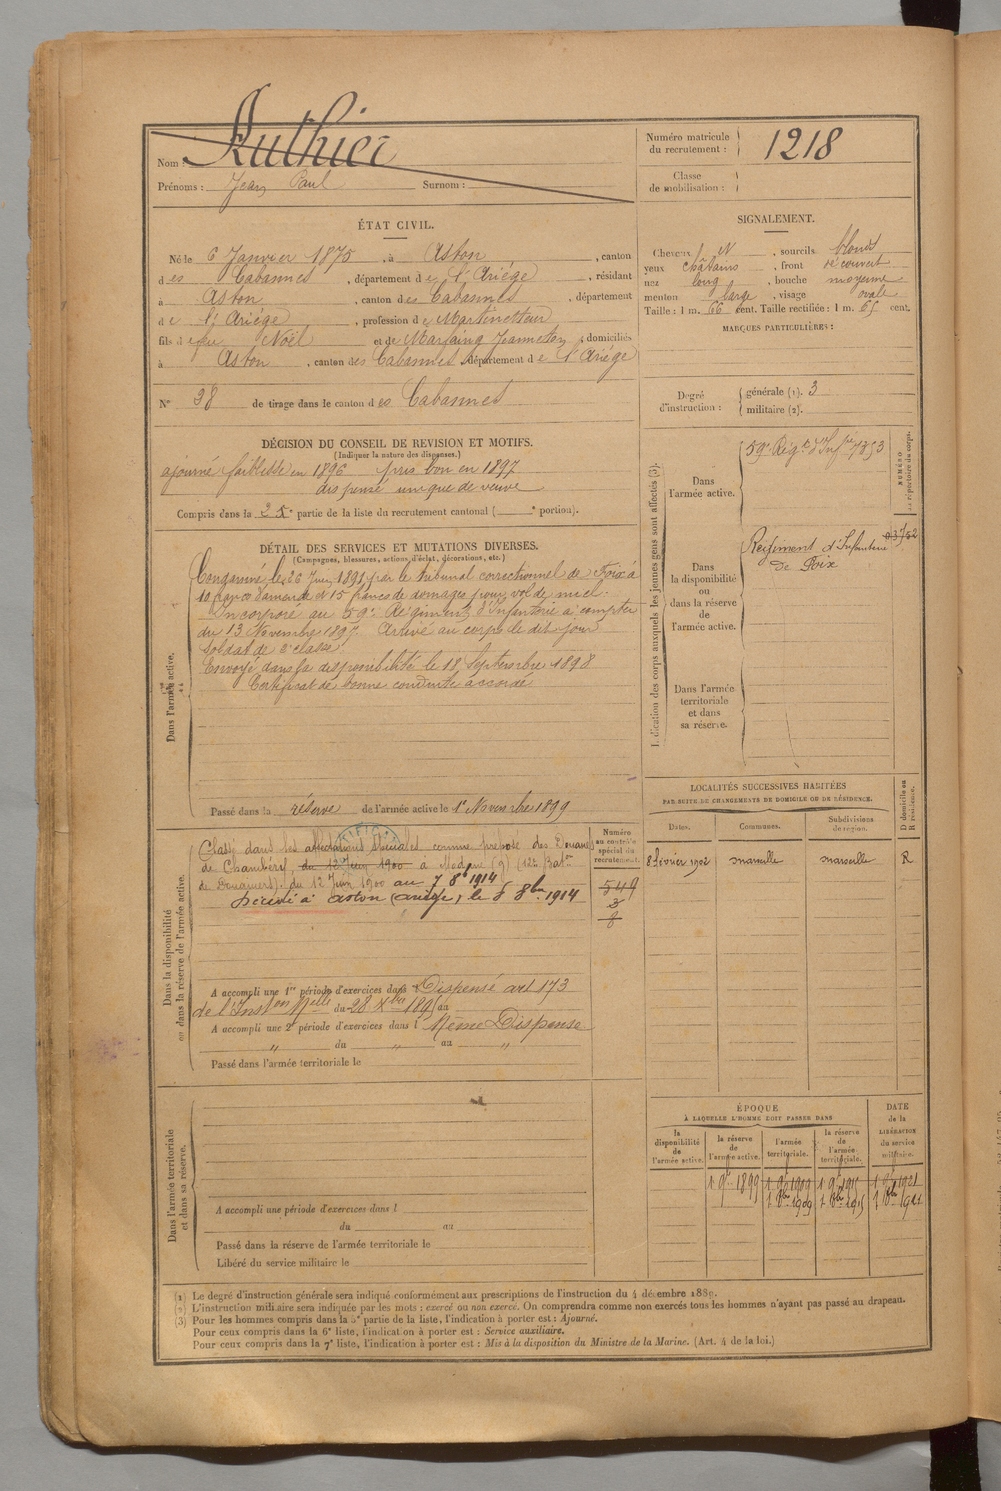 Nom : Authier
Prénoms : Jean Paul Surnom :
Numéro matricule du recrutement : 1218
Classe de mobilisation :
ÉTAT CIVIL.
Né le 6 Janvier 1875, à Aston, canton
des Cabannes, département de l'Ariége, résidant
à Aston, canton des Cabannes, département
de l'Ariége, profession de Martinetteur
fils de feu Noël et de Marfaing Jeanneton, domiciliés
à Aston, canton des Cabannes, département de l'Ariége
N° 38 de tirage dans le canton des Cabannes
SIGNALEMENT.
Cheveux et, sourcils blonds
yeux châtains, front découvert
nez long, bouche moyenne
menton large, visage ovale
Taille : 1 m. 66 cent. Taille rectifiée : 1 m. 65 cent.
MARQUES PARTICULIÈRES :
Degré d'instruction : générale (1). 3
militaire (2).
DÉCISION DU CONSEIL DE REVISION ET MOTIFS.
(Indiquer la nature des dispenses.)
ajourné faiblesse en 1896 pris bon en 1897
dispensé unique de veuve
Compris dans la e partie de la liste du recrutement cantonal ( e portion).
DÉTAIL DES SERVICES ET MUTATIONS DIVERSES.
(Campagnes, blessures, actions d'éclat, décorations, etc.)
Dans l'armée active.
Condamné le 26 Juin 1891 par le tribunal correctionnel de Foix à
10 francs d'amende et 15 francs de domages pour vol de miel.
Incorporé au 59e Régiment d'Infanterie à compter
du 13 Novembre 1897. Arrivé au corps le dit jour
Soldat de 2e classe.
Envoyé dans la disponibilité le 18 Septembre 1898
Certificat de bonne conduite accordé
Passé dans la réserve de l'armée active le 1er Novembre 1899
Indication des corps auxquels les jeunes gens sont affectés (3).
NUMÉRO au répertoire du corps.
Dans l'armée active.
59e Régt d'Infie 7853
Dans la disponibilité ou dans la réserve de l'armée active.
Régiment d'Infanterie
de Foix
Dans l'armée territoriale et dans sa réserve.
LOCALITÉS SUCCESSIVES HABITÉES
PAR SUITE DE CHANGEMENTS DE DOMICILE OU DE RÉSIDENCE.
D domicile ou R résidence.
Dates. Communes. Subdivisions de région.
8 février 1902 marseille marseille R
Dans la disponibilité ou dans la réserve de l'armée active.
Numéro au contrôle spécial du recrutement.
549
Classé dans les affectations spéciales comme préposé des Douanes
de Chambéry, du 12 Juin 1900 à Modane (9) (12e Batn
de Douaniers). du 12 Juin 1900 au 7 8b 1914
Décédé à Aston (ariège) le 8 8bre 1914
A accompli une 1re période d'exercices dans Dispensé art 173
de l'Inston Melle du 28 Xbre 1895 au
A accompli une 2e période d'exercices dans l Même Dispense
" du " au "
Passé dans l'armée territoriale le
Dans l'armée territoriale et dans sa réserve.
A accompli une période d'exercices dans l
du au
Passé dans la réserve de l'armée territoriale le
Libéré du service militaire le
ÉPOQUE
À LAQUELLE L'HOMME DOIT PASSER DANS
la disponibilité de l'armée active. la réserve de l'armée active. l'armée territoriale. la réserve de l'armée territoriale.
DATE de la LIBÉRATION du service militaire.
1 9bre 1899 1 9bre 1909 1 9bre 1915 1 9bre 1921
1 8bre 1909 1 8bre 1915 1 8bre 1921
(1) Le degré d'instruction générale sera indiqué conformément aux prescriptions de l'instruction du 4 décembre 1889.
(2) L'instruction militaire sera indiquée par les mots : exercé ou non exercé. On comprendra comme non exercés tous les hommes n'ayant pas passé au drapeau.
(3) Pour les hommes compris dans la 5e partie de la liste, l'indication à porter est : Ajourné.
Pour ceux compris dans la 6e liste, l'indication à porter est : Service auxiliaire.
Pour ceux compris dans la 7e liste, l'indication à porter est : Mis à la disposition du Ministre de la Marine. (Art. 4 de la loi.)